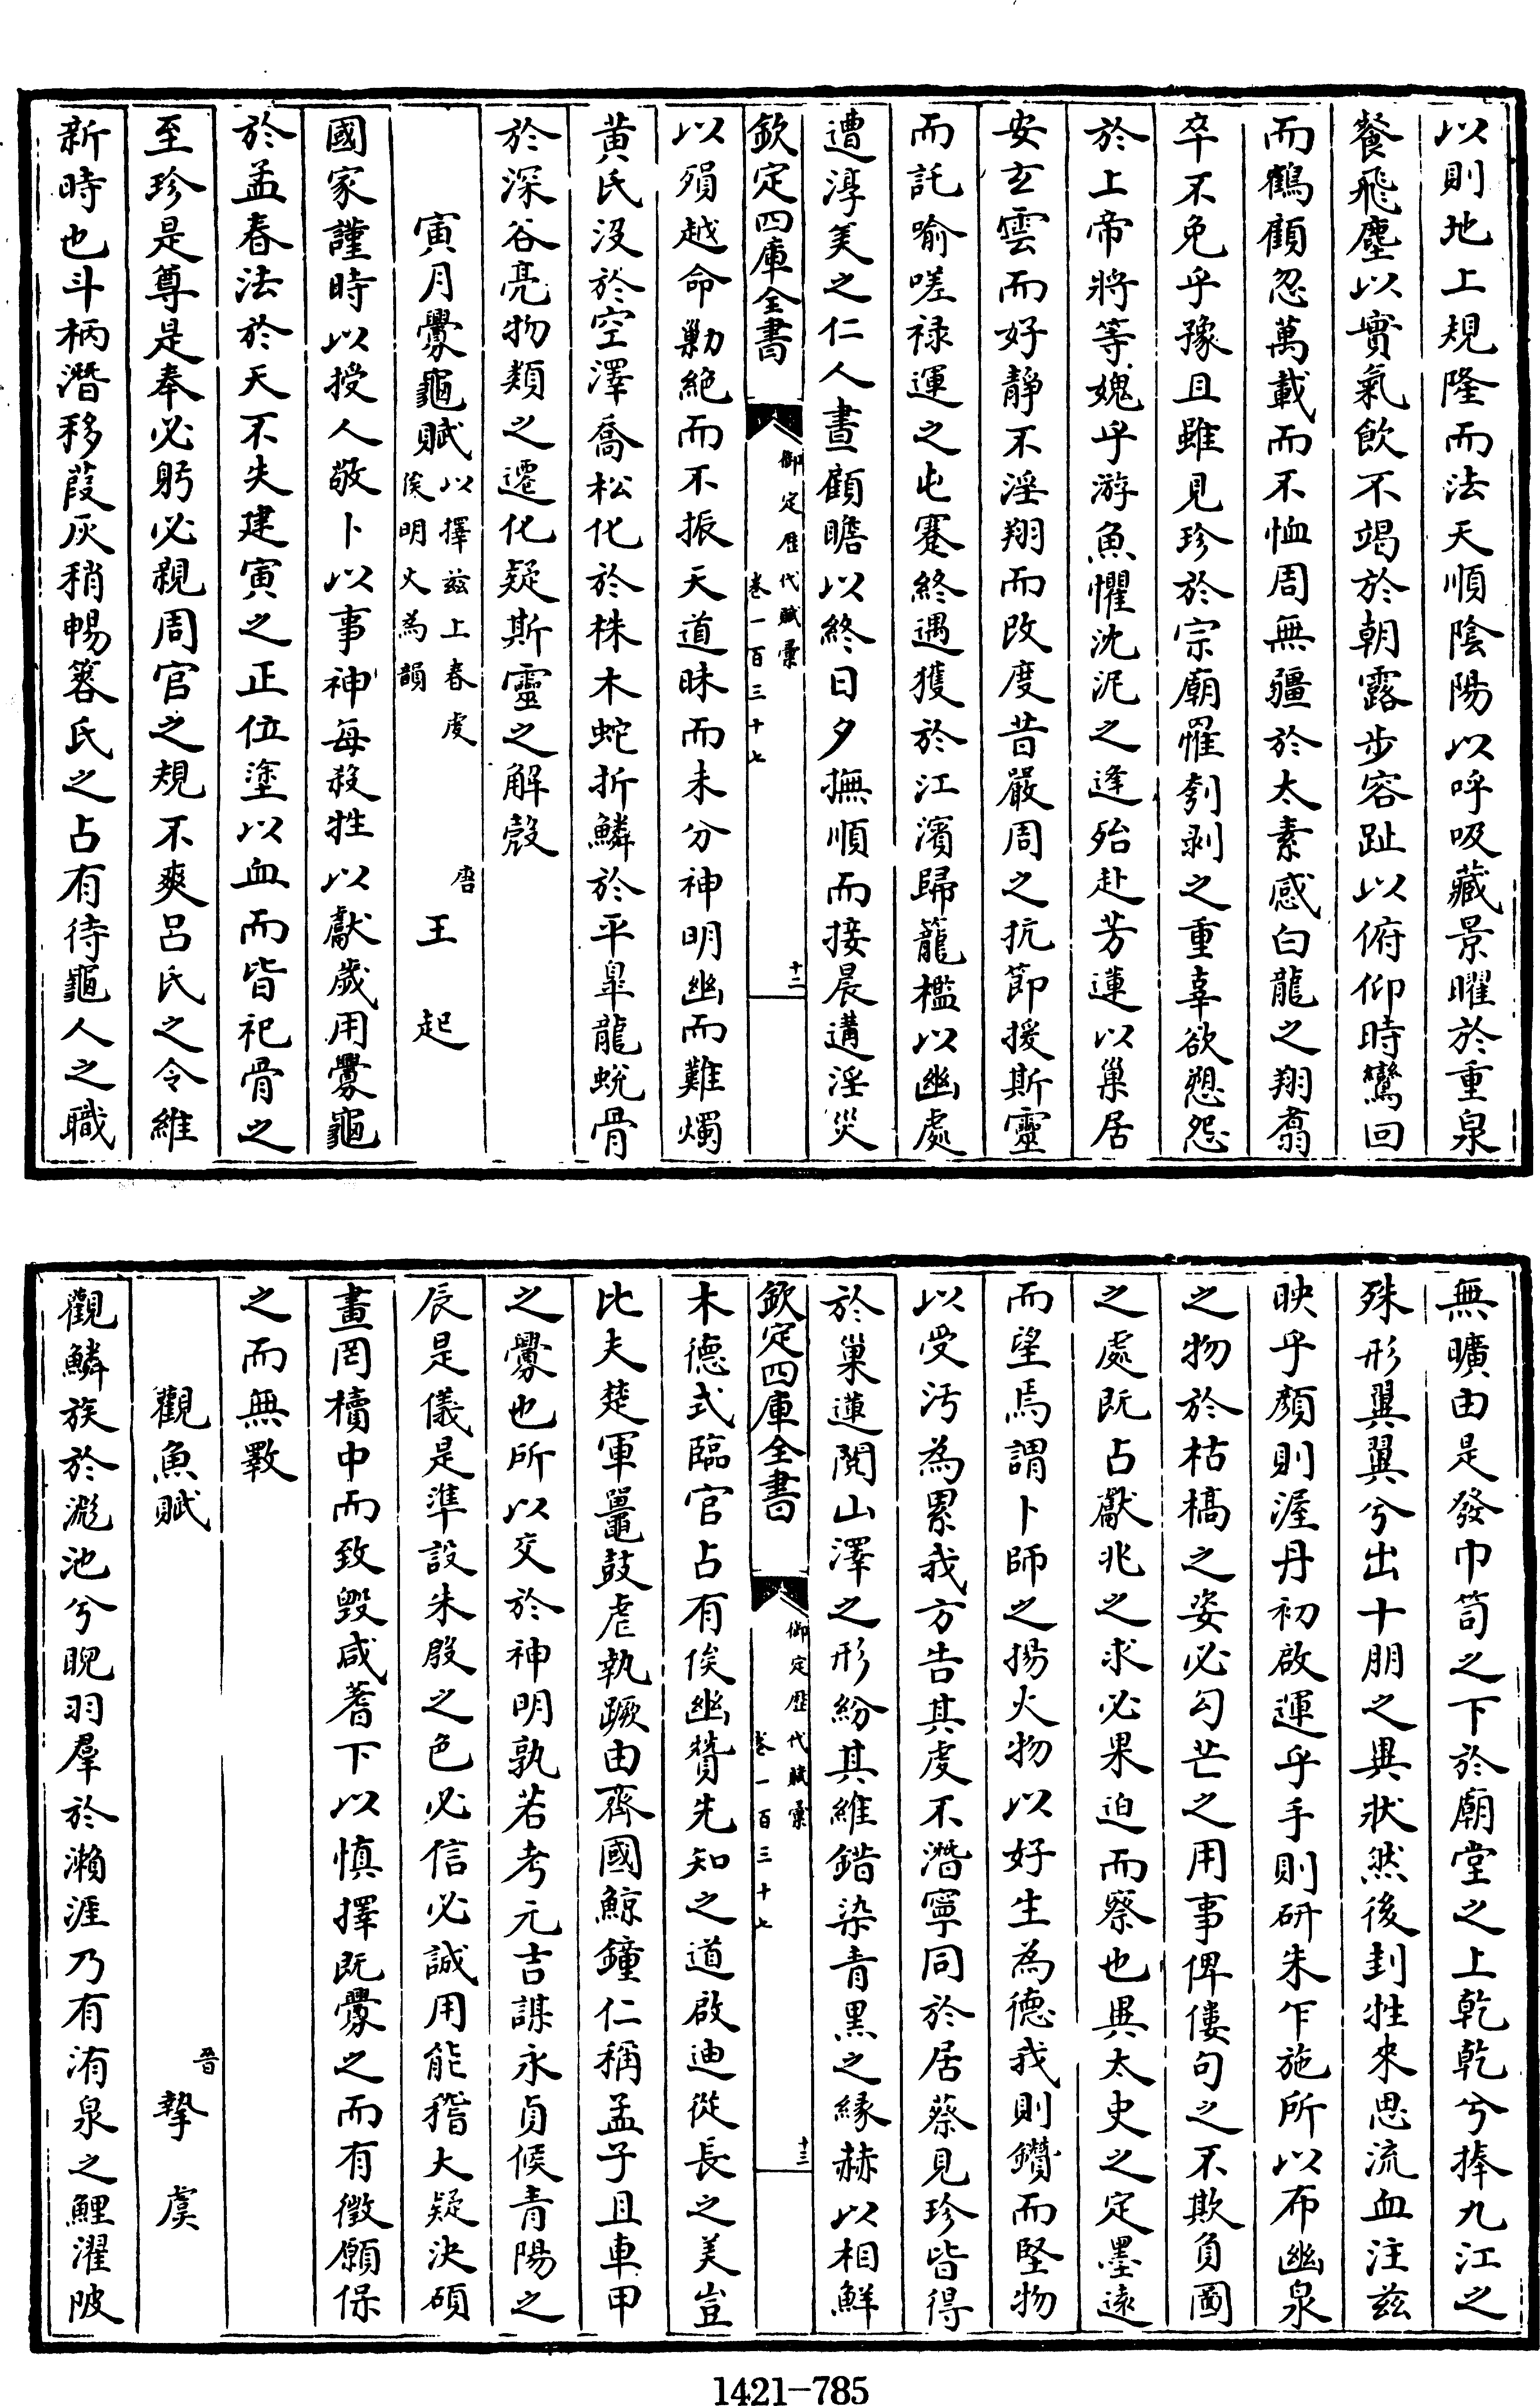 以則地上規隆而法天順陰陽以呼吸藏景曜於重泉
餐飛塵以實氣飲不竭於朝露步容趾以俯仰時鸞回
而鶴顧忽萬載而不恤周無疆於太素感白龍之翔翥
卒不免乎豫且雖見珍於宗廟罹刳剥之重辜欲愬怨
於上帝將等媿乎游魚懼沈泥之逢殆赴芳蓮以巢居
安玄雲而好靜不淫翔而改度昔嚴周之抗節援斯靈
而託喻嗟禄運之屯蹇終遇獲於江濱歸籠檻以幽處
遭淳美之仁人晝顧瞻以終日夕撫順而接晨遘淫災
欽定四庫全書
御定歷代賦彙
卷一百三十七
十二
以殞越命勦絶而不振天道昧而未分神明幽而難燭
黄氏没於空澤喬松化於株木蛇折鱗於平皐龍蛻骨
於深谷亮物類之遷化疑斯靈之解殼
寅月釁龜賦
以擇兹上春虔
俟明火為韻
唐
王起
國家謹時以授人敬卜以事神每殺牲以獻歲用釁龜
於孟春法於天不失建寅之正位塗以血而皆祀骨之
至珍是尊是奉必躬必親周官之規不爽呂氏之令維
新時也斗柄潛移葭灰稍暢簭氏之占有待龜人之職
無曠由是發巾笥之下於廟堂之上乾乾兮捧九江之
殊形翼翼兮出十朋之異狀然後刲牲來思流血注兹
映乎顔則渥丹初啟運乎手則研朱乍施所以布幽泉
之物於枯槁之姿必勾芒之用事俾僂句之不欺負圖
之處既占獻兆之求必果迫而察也異太史之定墨遠
而望焉謂卜師之揚火物以好生為德我則鑽而堅物
以受汚為累我方告其虔不潛寧同於居蔡見珍皆得
於巢蓮閱山澤之形紛其維錯染青黑之緣赫以相鮮
欽定四庫全書
御定歷代賦彙
卷一百三十七
十三
木德式臨官占有俟幽贊先知之道啟迪從長之美豈
比夫楚軍鼉鼓虐執蹶由齊國鯨鐘仁稱孟子且車甲
之釁也所以交於神明孰若考元吉謀永貞候青陽之
辰是儀是準設朱殷之色必信必誠用能稽大疑決碩
畫罔櫝中而致毁咸蓍下以慎擇既釁之而有徵願保
之而無斁
觀魚賦
晉
摯虞
觀鱗族於滮池兮睨羽羣於瀨涯乃有洧泉之鯉濯陂
1421—785